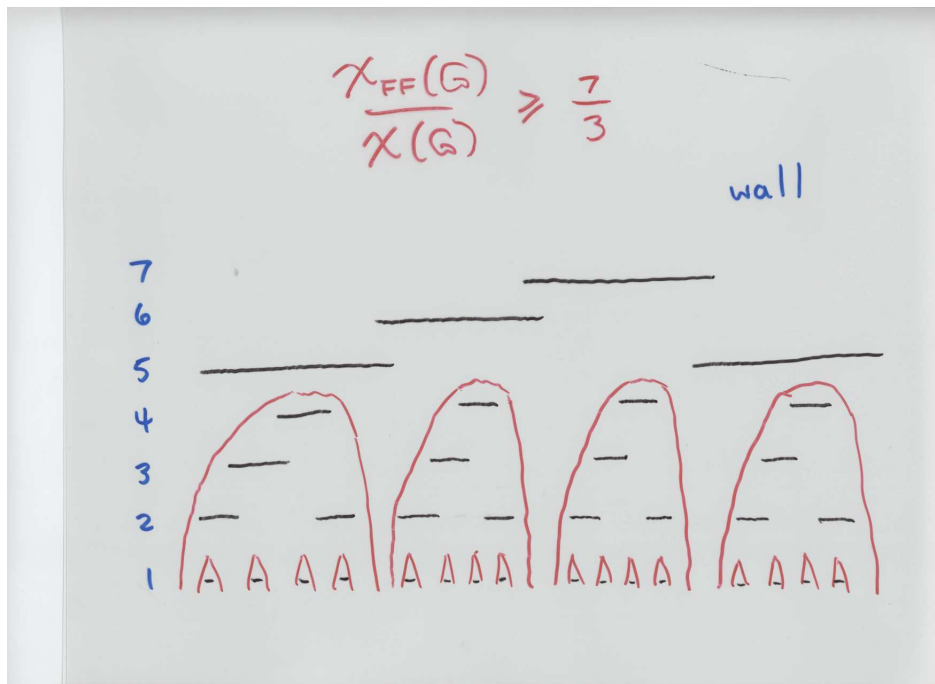 χFF(G)
χ(G)
≥ 7/3
wall
7
6
5
4
3
2
1